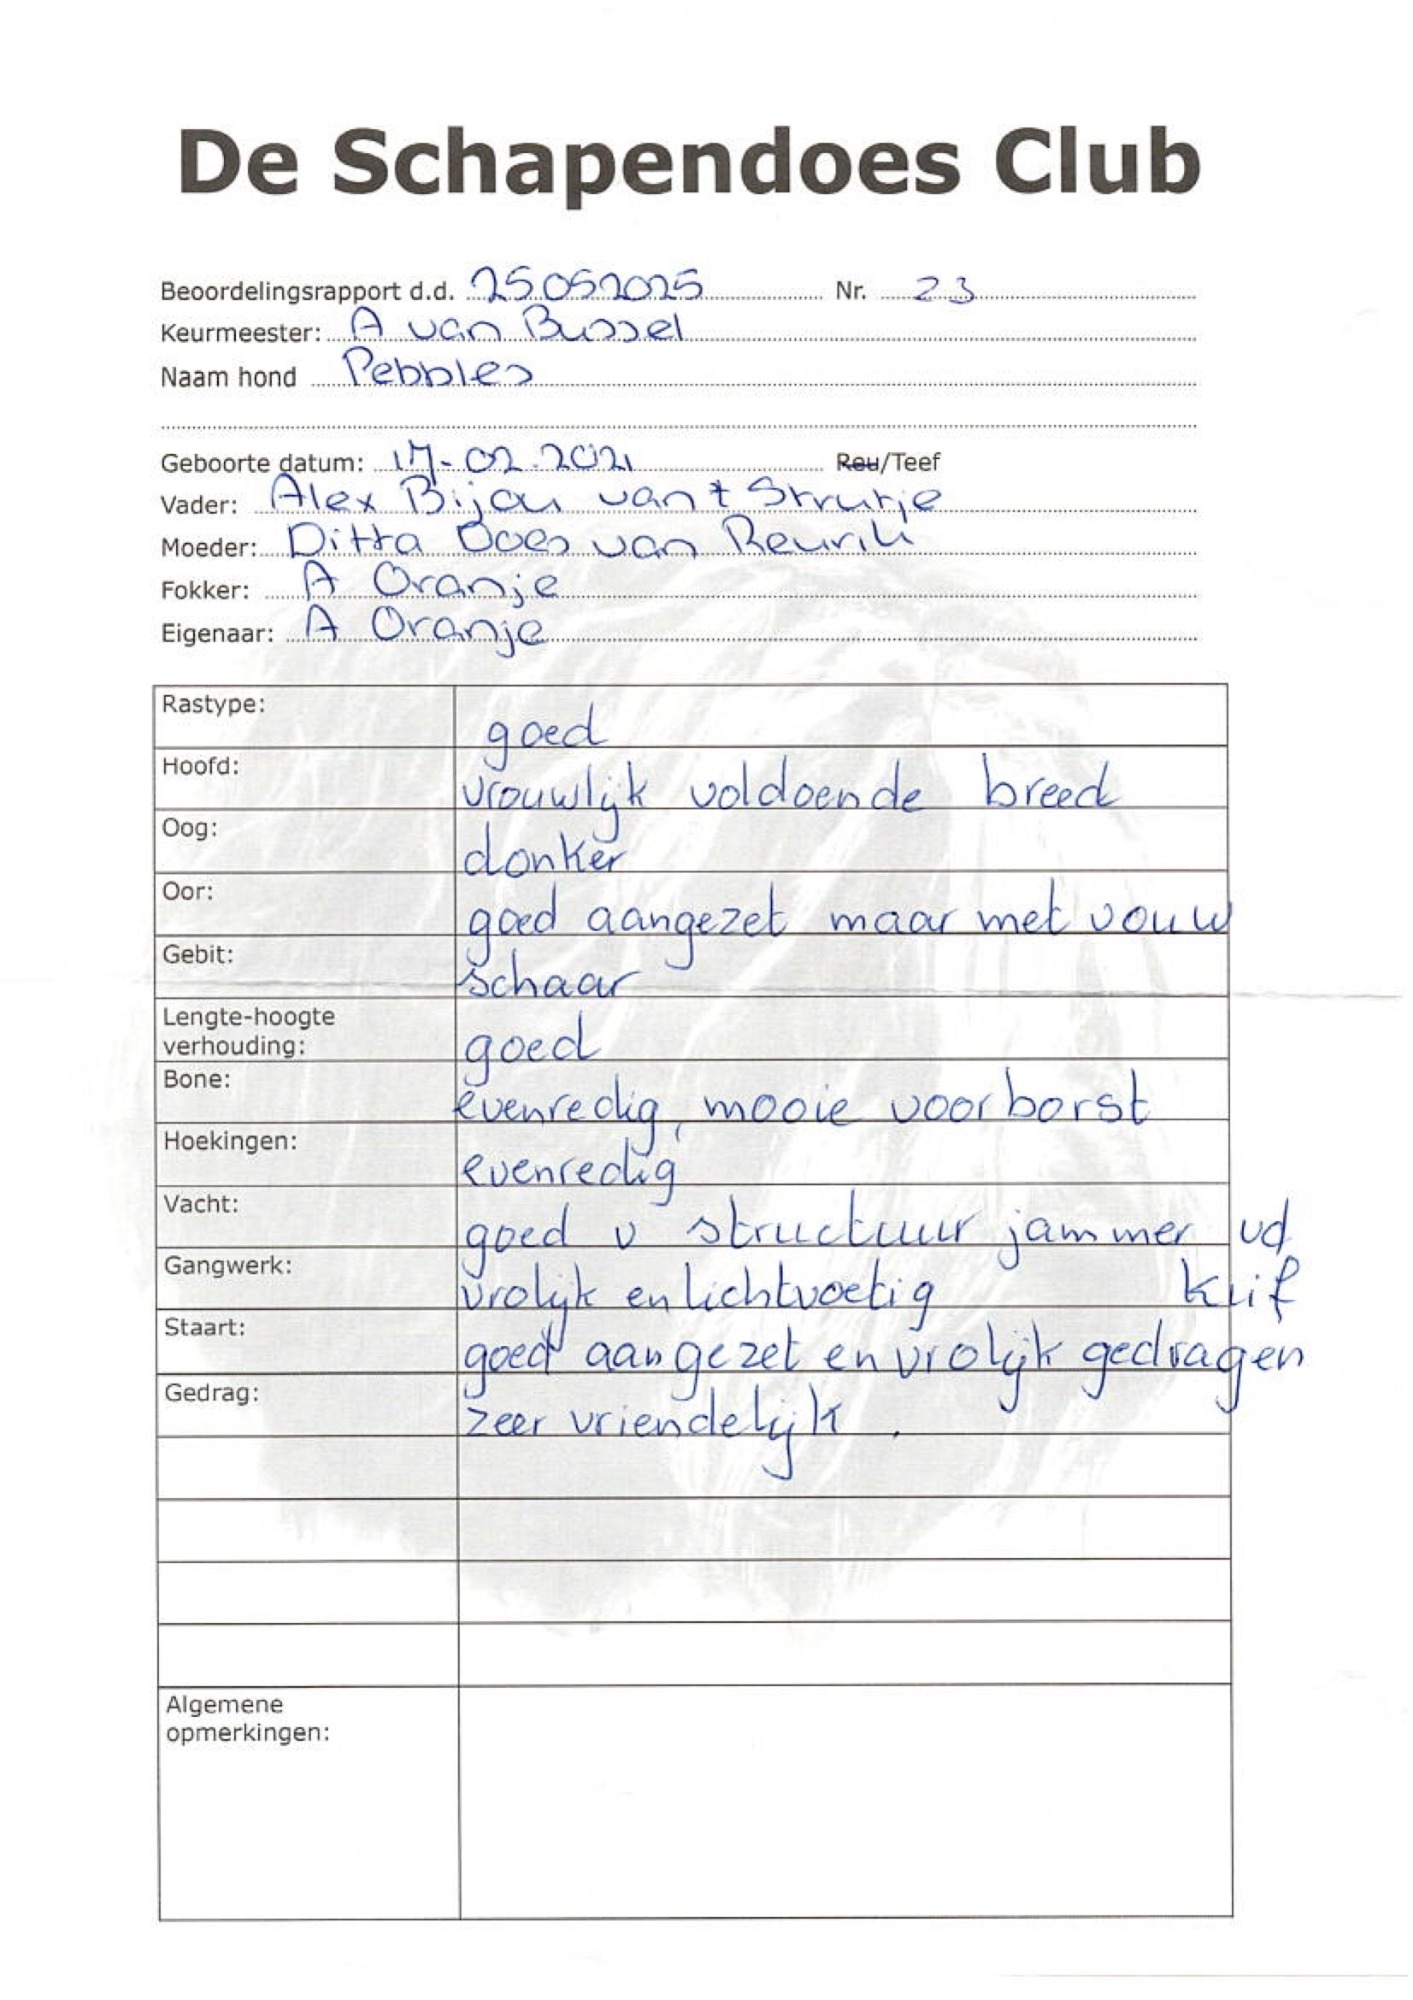 De Schapendoes Club
Beoordelingsrapport d.d. 25052025 Nr. 23
Keurmeester: A van Bussel
Naam hond Pebbles
Geboorte datum: 17-02.2021 Reu/Teef
Vader: Alex Bijou van t Struutje
Moeder: Ditta Does van
Fokker: A Oranje
Eigenaar: A Oranje
Rastype: goed
Hoofd: vrouwlijk voldoende breed
Oog: donker
Oor: goed aangezet maar met vouw
Gebit: schaar
Lengte-hoogte
verhouding: goed
Bone: evenredig, mooie voorborst
Hoekingen: evenredig
Vacht: goed v structuur jammer vd
klif
Gangwerk: vrolijk en lichtvoetig
Staart: goed aangezet en vrolijk gedragen
Gedrag: zeer vriendelijk.
Algemene
opmerkingen: